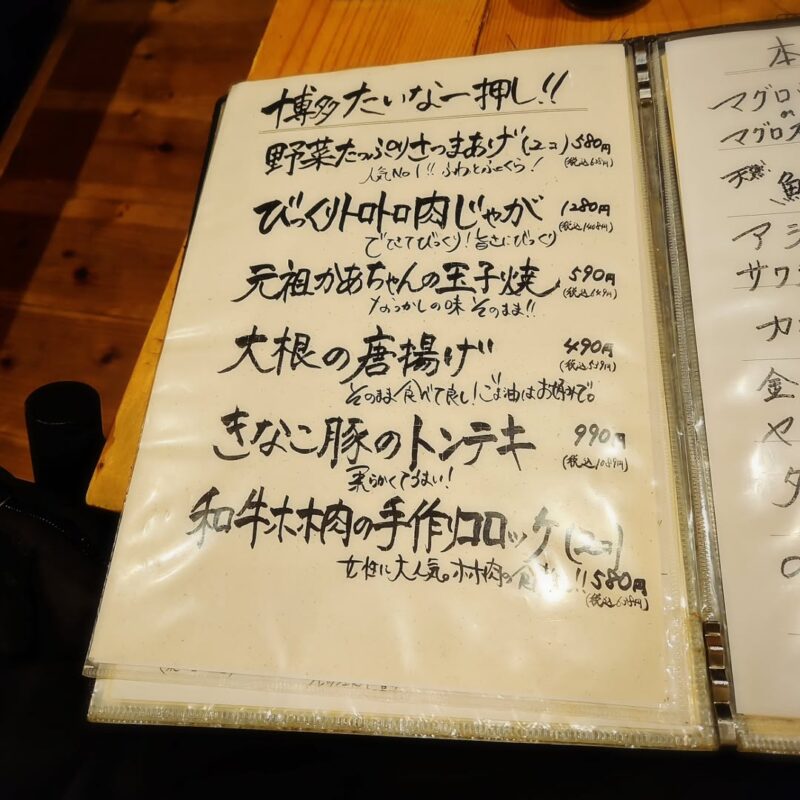 博多たいな一押し!!
野菜たっぷりさつまあげ(2コ) 580円
(税込638円)
人気No1!! ふわとふっくら!
びっくりトロトロ肉じゃが 1280円
(税込1408円)
でてきてびっくり!旨さにびっくり
元祖かあちゃんの玉子焼 590円
(税込649円)
なつかしの味 そのまま!!
大根の唐揚げ 490円
(税込539円)
そのまま食べて良し!ごま油はお好みで。
きなこ豚のトンテキ 990円
(税込1089円)
柔らかくてうまい!
和牛ホホ肉の手作りコロッケ(2コ)
女性に大人気。ホホ肉の食 !! 580円
(税込638円)
本
マグロ
の
マグロ
天然
アジ
サワ
カ
金
ヤ
タ
の